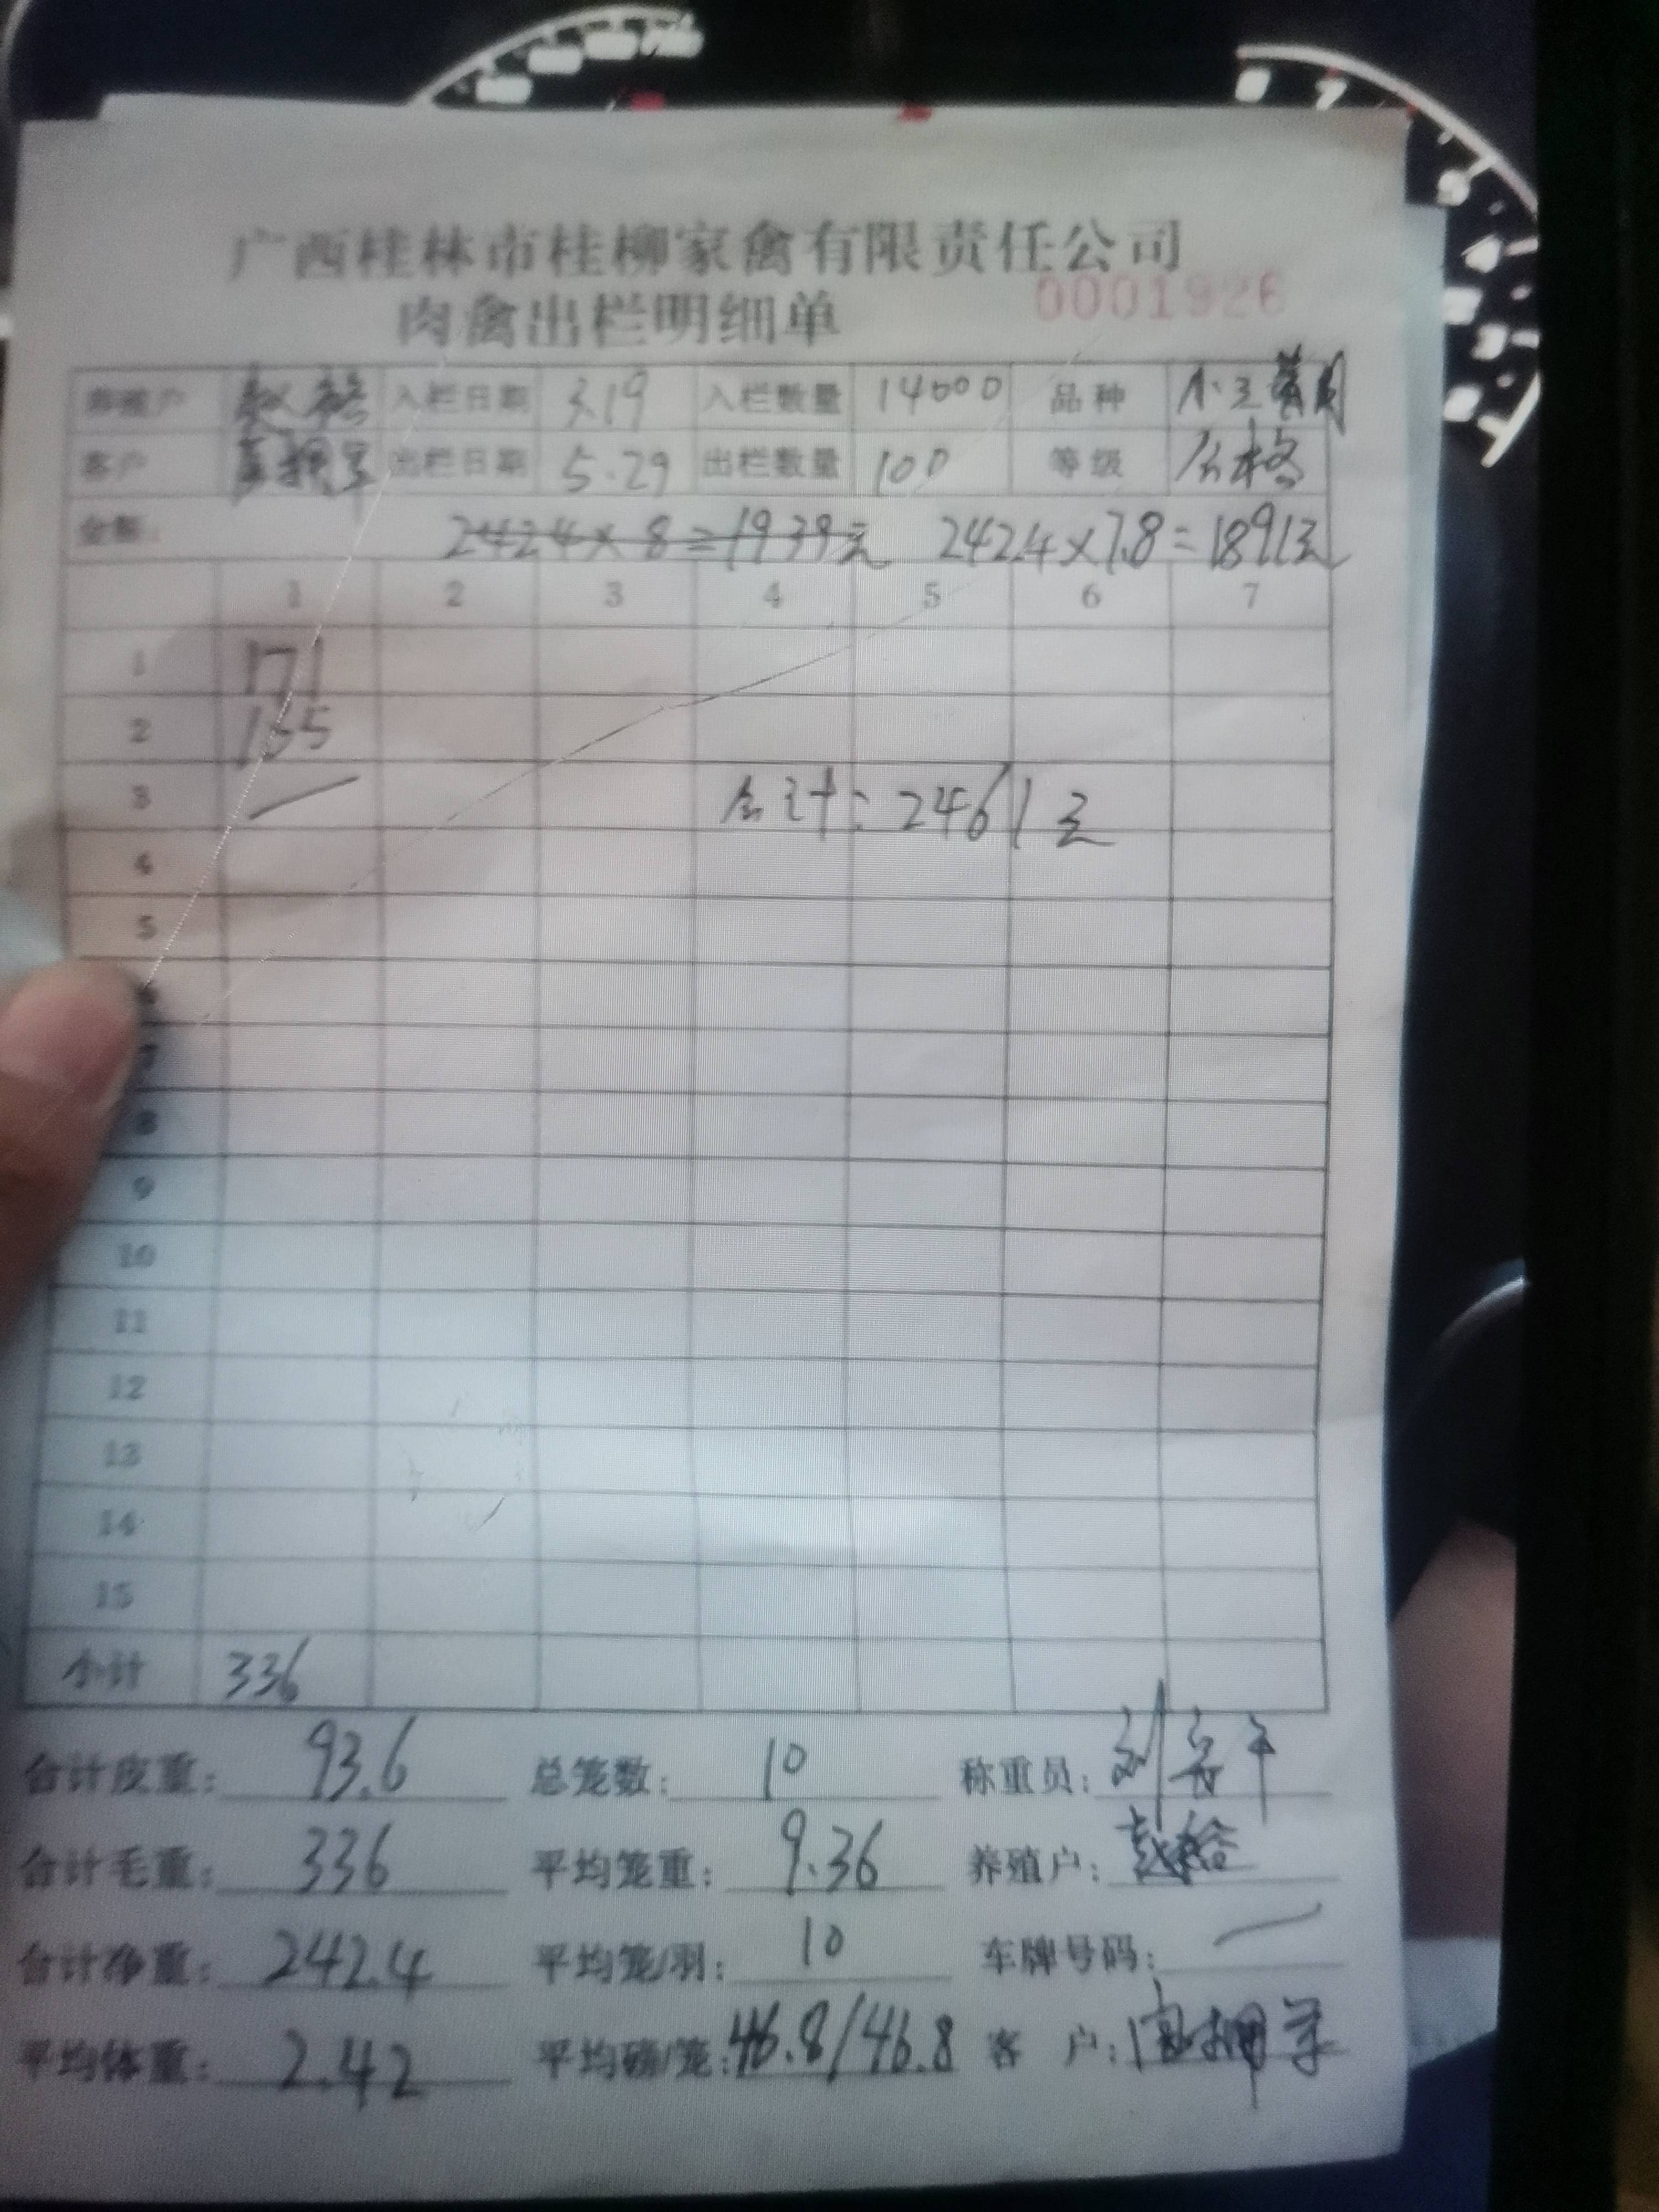 广西桂林市桂柳家禽有限责任公司
肉禽出栏明细单 0001926
养殖户 入栏日期 3.19 入栏数量 14000 品种
客户 出栏日期 5.29 出栏数量 100 等级 合格
金额: 242.4×8=1939元 242.4×7.8=1891元
1 2 3 4 5 6 7
1 171
2 165
3 合计:2461元
4
5
6
7
8
9
10
11
12
13
14
15
小计 336
合计皮重: 93.6 总笼数: 10 称重员:
合计毛重: 336 平均笼重: 9.36 养殖户:
合计净重: 242.4 平均笼/羽: 10 车牌号码:
平均体重: 2.42 平均磅/笼: 46.8/46.8 客户: